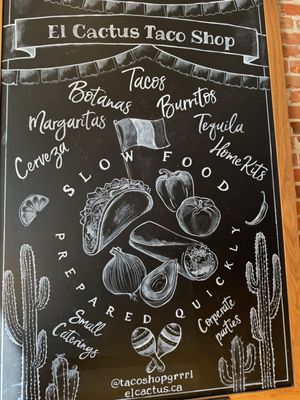 El Cactus Taco Shop
Tacos
Botanas
Burritos
Margaritas
Tequila
Cerveza
Home Kits
SLOW FOOD
PREPARED QUICKLY
Small
Caterings
Corporate
parties
@tacoshopgrrrl
elcactus.ca